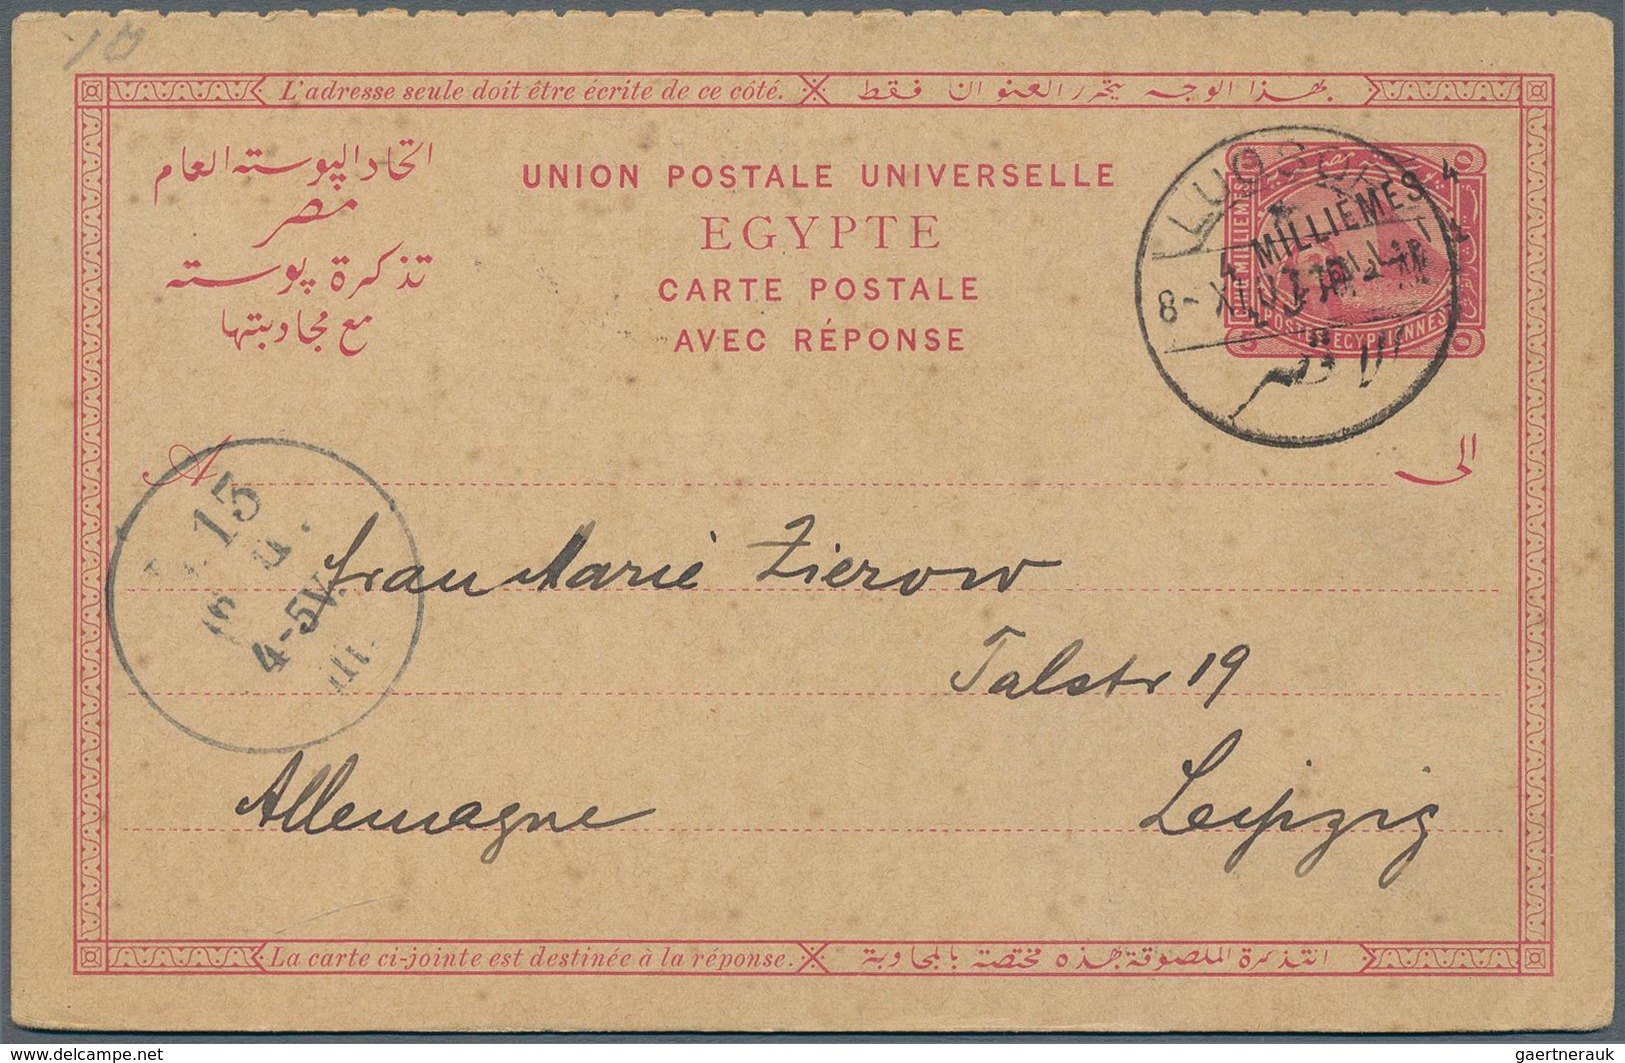 10
L'adresse seule doit être écrite de ce côté.
بهذا الوجه يتحرر العنوان فقط
اتحاد البوسته العام
مصر
تذكرة بوسته
مع مجاوبتها
UNION POSTALE UNIVERSELLE
EGYPTE
CARTE POSTALE
AVEC RÉPONSE
LUQSOR
4 MILLIÈMES 4
8-XI
الاقصر
POSTES EGYPTIENNES
A
الى
Frau Marie Zierow
Talstr 19
Allemagne Leipzig
L. 13
16
4-5V.
III.
La carte ci-jointe est destinée à la réponse.
التذكرة الملصوقة بهذه مختصة بالمجاوبة
www.delcampe.net
gaertnerauk